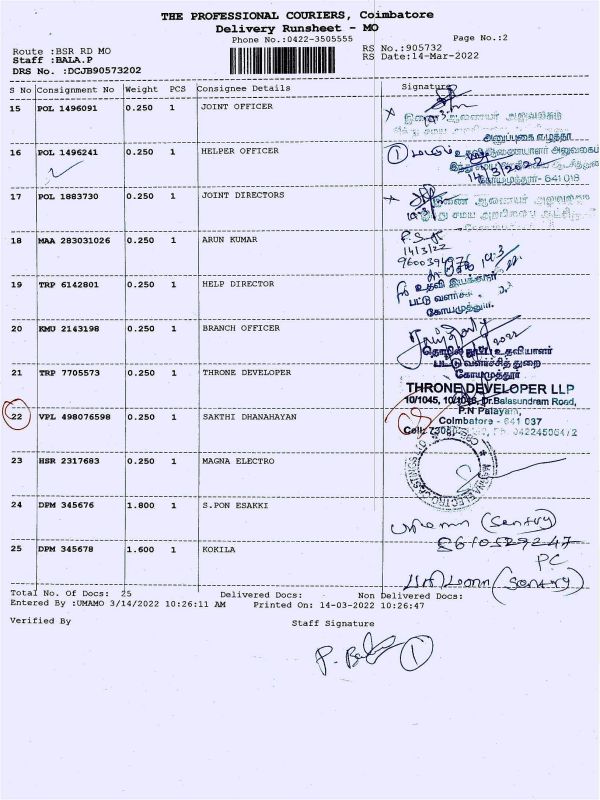 THE PROFESSIONAL COURIERS, Coimbatore
Delivery Runsheet - MO
Phone No.:0422-3505555
Page No.:2
Route :BSR RD MO
RS No.:905732
Staff :BALA.P
RS Date:14-Mar-2022
DRS No. :DCJB90573202
S No Consignment No Weight PCS Consignee Details Signature
15 POL 1496091 0.250 1 JOINT OFFICER
16 POL 1496241 0.250 1 HELPER OFFICER
14/3/2022
கோயமுத்தூர்- 641 018
17 POL 1883730 0.250 1 JOINT DIRECTORS
18 MAA 283031026 0.250 1 ARUN KUMAR
14/3/22
19 TRP 6142801 0.250 1 HELP DIRECTOR
உதவி இயக்குநர்
பட்டு வளர்ச்சி
கோயமுத்தூர்.
20 KMU 2143198 0.250 1 BRANCH OFFICER
பட்டு வளர்ச்சித் துறை
கோயமுத்தூர்
21 TRP 7705573 0.250 1 THRONE DEVELOPER
THRONE DEVELOPER LLP
10/1045, 10/1046, Dr.Balasundram Road,
P.N Palayam,
Coimbatore - 641 037
22 VPL 498076598 0.250 1 SAKTHI DHANAHAYAN
23 HSR 2317683 0.250 1 MAGNA ELECTRO
24 DPM 345676 1.800 1 S.PON ESAKKI
(Sentry)
25 DPM 345678 1.600 1 KOKILA
PC
(Sentry)
Total No. Of Docs: 25 Delivered Docs: Non Delivered Docs:
Entered By :UMAMO 3/14/2022 10:26:11 AM Printed On: 14-03-2022 10:26:47
Verified By Staff Signature
P. Bala 1